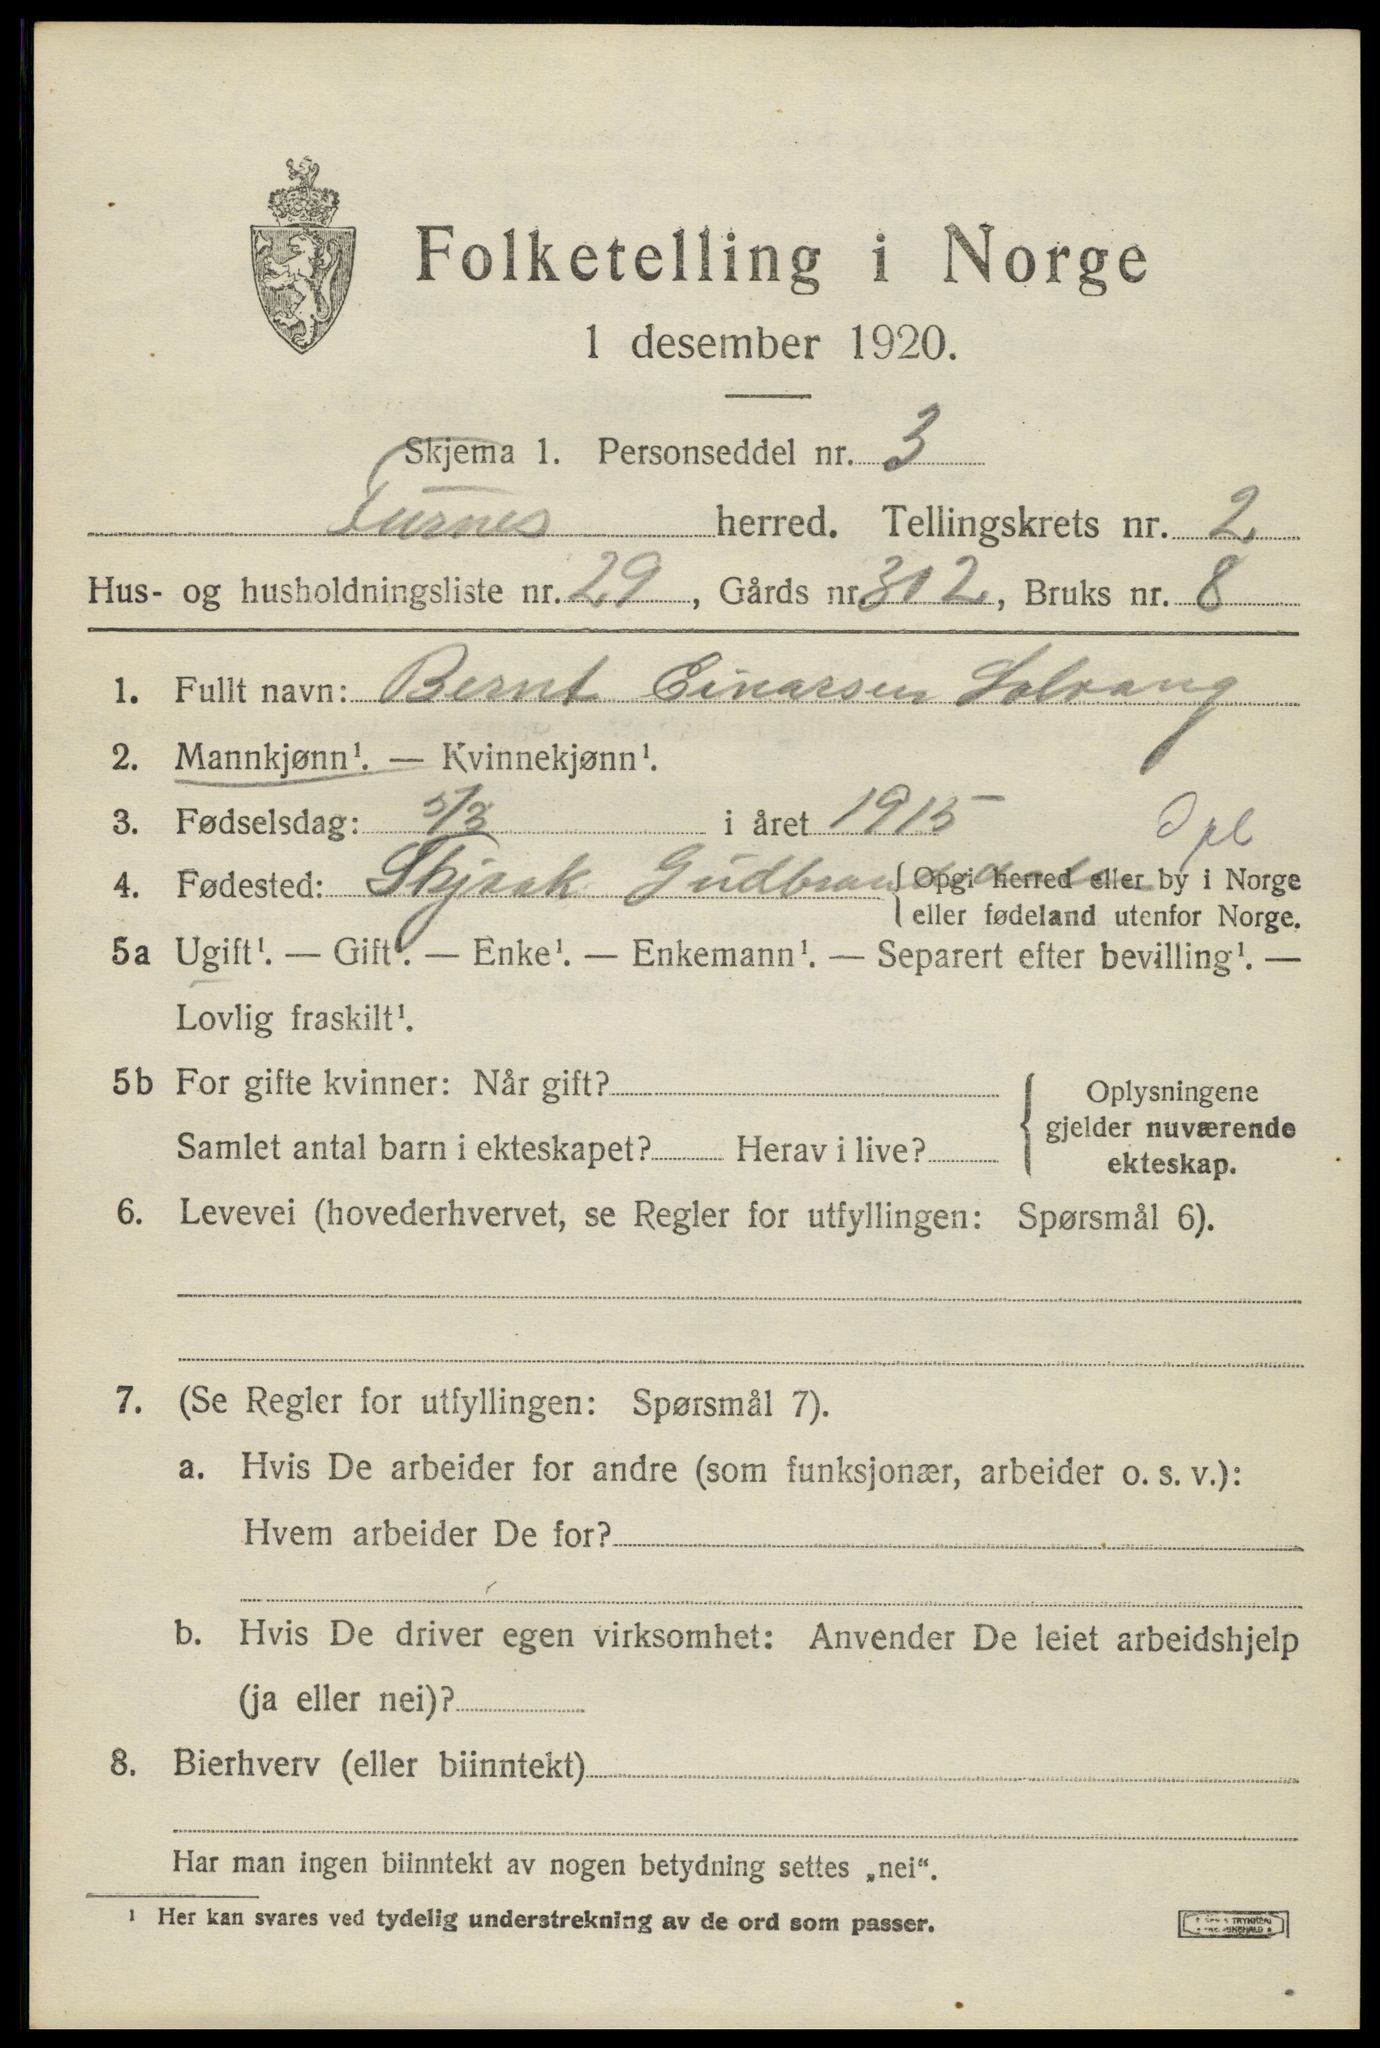 Folketelling i Norge
1 desember 1920.
Skjema 1. Personseddel nr. 3
Furnes herred. Tellingskrets nr. 2
Hus- og husholdningsliste nr. 29, Gårds nr. 312, Bruks nr. 8
1. Fullt navn: Bernt Einarsen Solvang
2. Mannkjønn¹. — Kvinnekjønn¹.
3. Fødselsdag: 5/3 i året 1915
Opl
4. Fødested: Skjaak Gudbrandsdalen { Opgi herred eller by i Norge
eller fødeland utenfor Norge.
5a Ugift¹. — Gift¹. — Enke¹. — Enkemann¹. — Separert efter bevilling¹. —
Lovlig fraskilt¹.
5b For gifte kvinner: Når gift?
Samlet antal barn i ekteskapet? Herav i live?
{ Oplysningene
gjelder nuværende
ekteskap.
6. Levevei (hovederhvervet, se Regler for utfyllingen: Spørsmål 6).
7. (Se Regler for utfyllingen: Spørsmål 7).
a. Hvis De arbeider for andre (som funksjonær, arbeider o. s. v.):
Hvem arbeider De for?
b. Hvis De driver egen virksomhet: Anvender De leiet arbeidshjelp
(ja eller nei)?
8. Bierhverv (eller biinntekt)
Har man ingen biinntekt av nogen betydning settes „nei“.
¹ Her kan svares ved tydelig understrekning av de ord som passer.